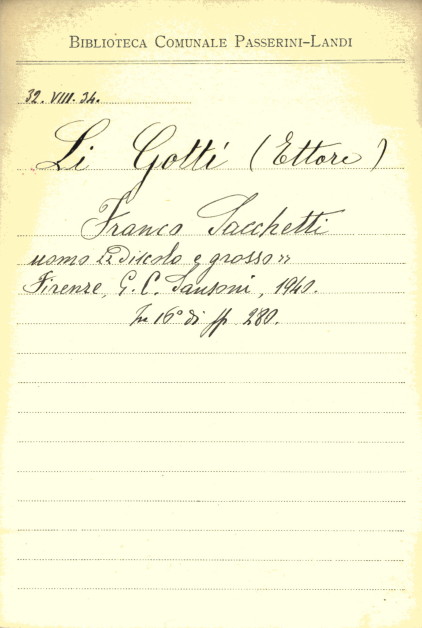 BIBLIOTECA COMUNALE PASSERINI-LANDI
32. VIII. 34.
Li Gotti (Ettore)
Franco Sacchetti
uomo «discolo e grosso»
Firenze, G. C. Sansoni, 1940.
In 16° di pp. 280.